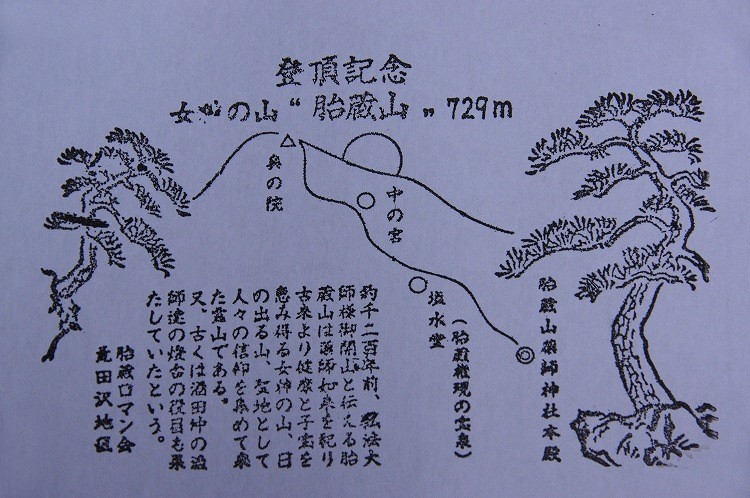 登頂記念
女神の山“胎蔵山”729m
奥の院
中の宮
塩水堂
(胎蔵権現の霊泉)
胎蔵山薬師神社本殿
約千二百年前、弘法大
師様御開山と伝える胎
蔵山は薬師如来を祀り
古来より健康と子宝を
恵み得る女神の山、日
の出る山、聖地として
人々の信仰を集めて来
た霊山である。
又、古くは酒田沖の漁
師達の燈台の役目も果
たしていたという。
胎蔵ロマン会
荒田沢地区